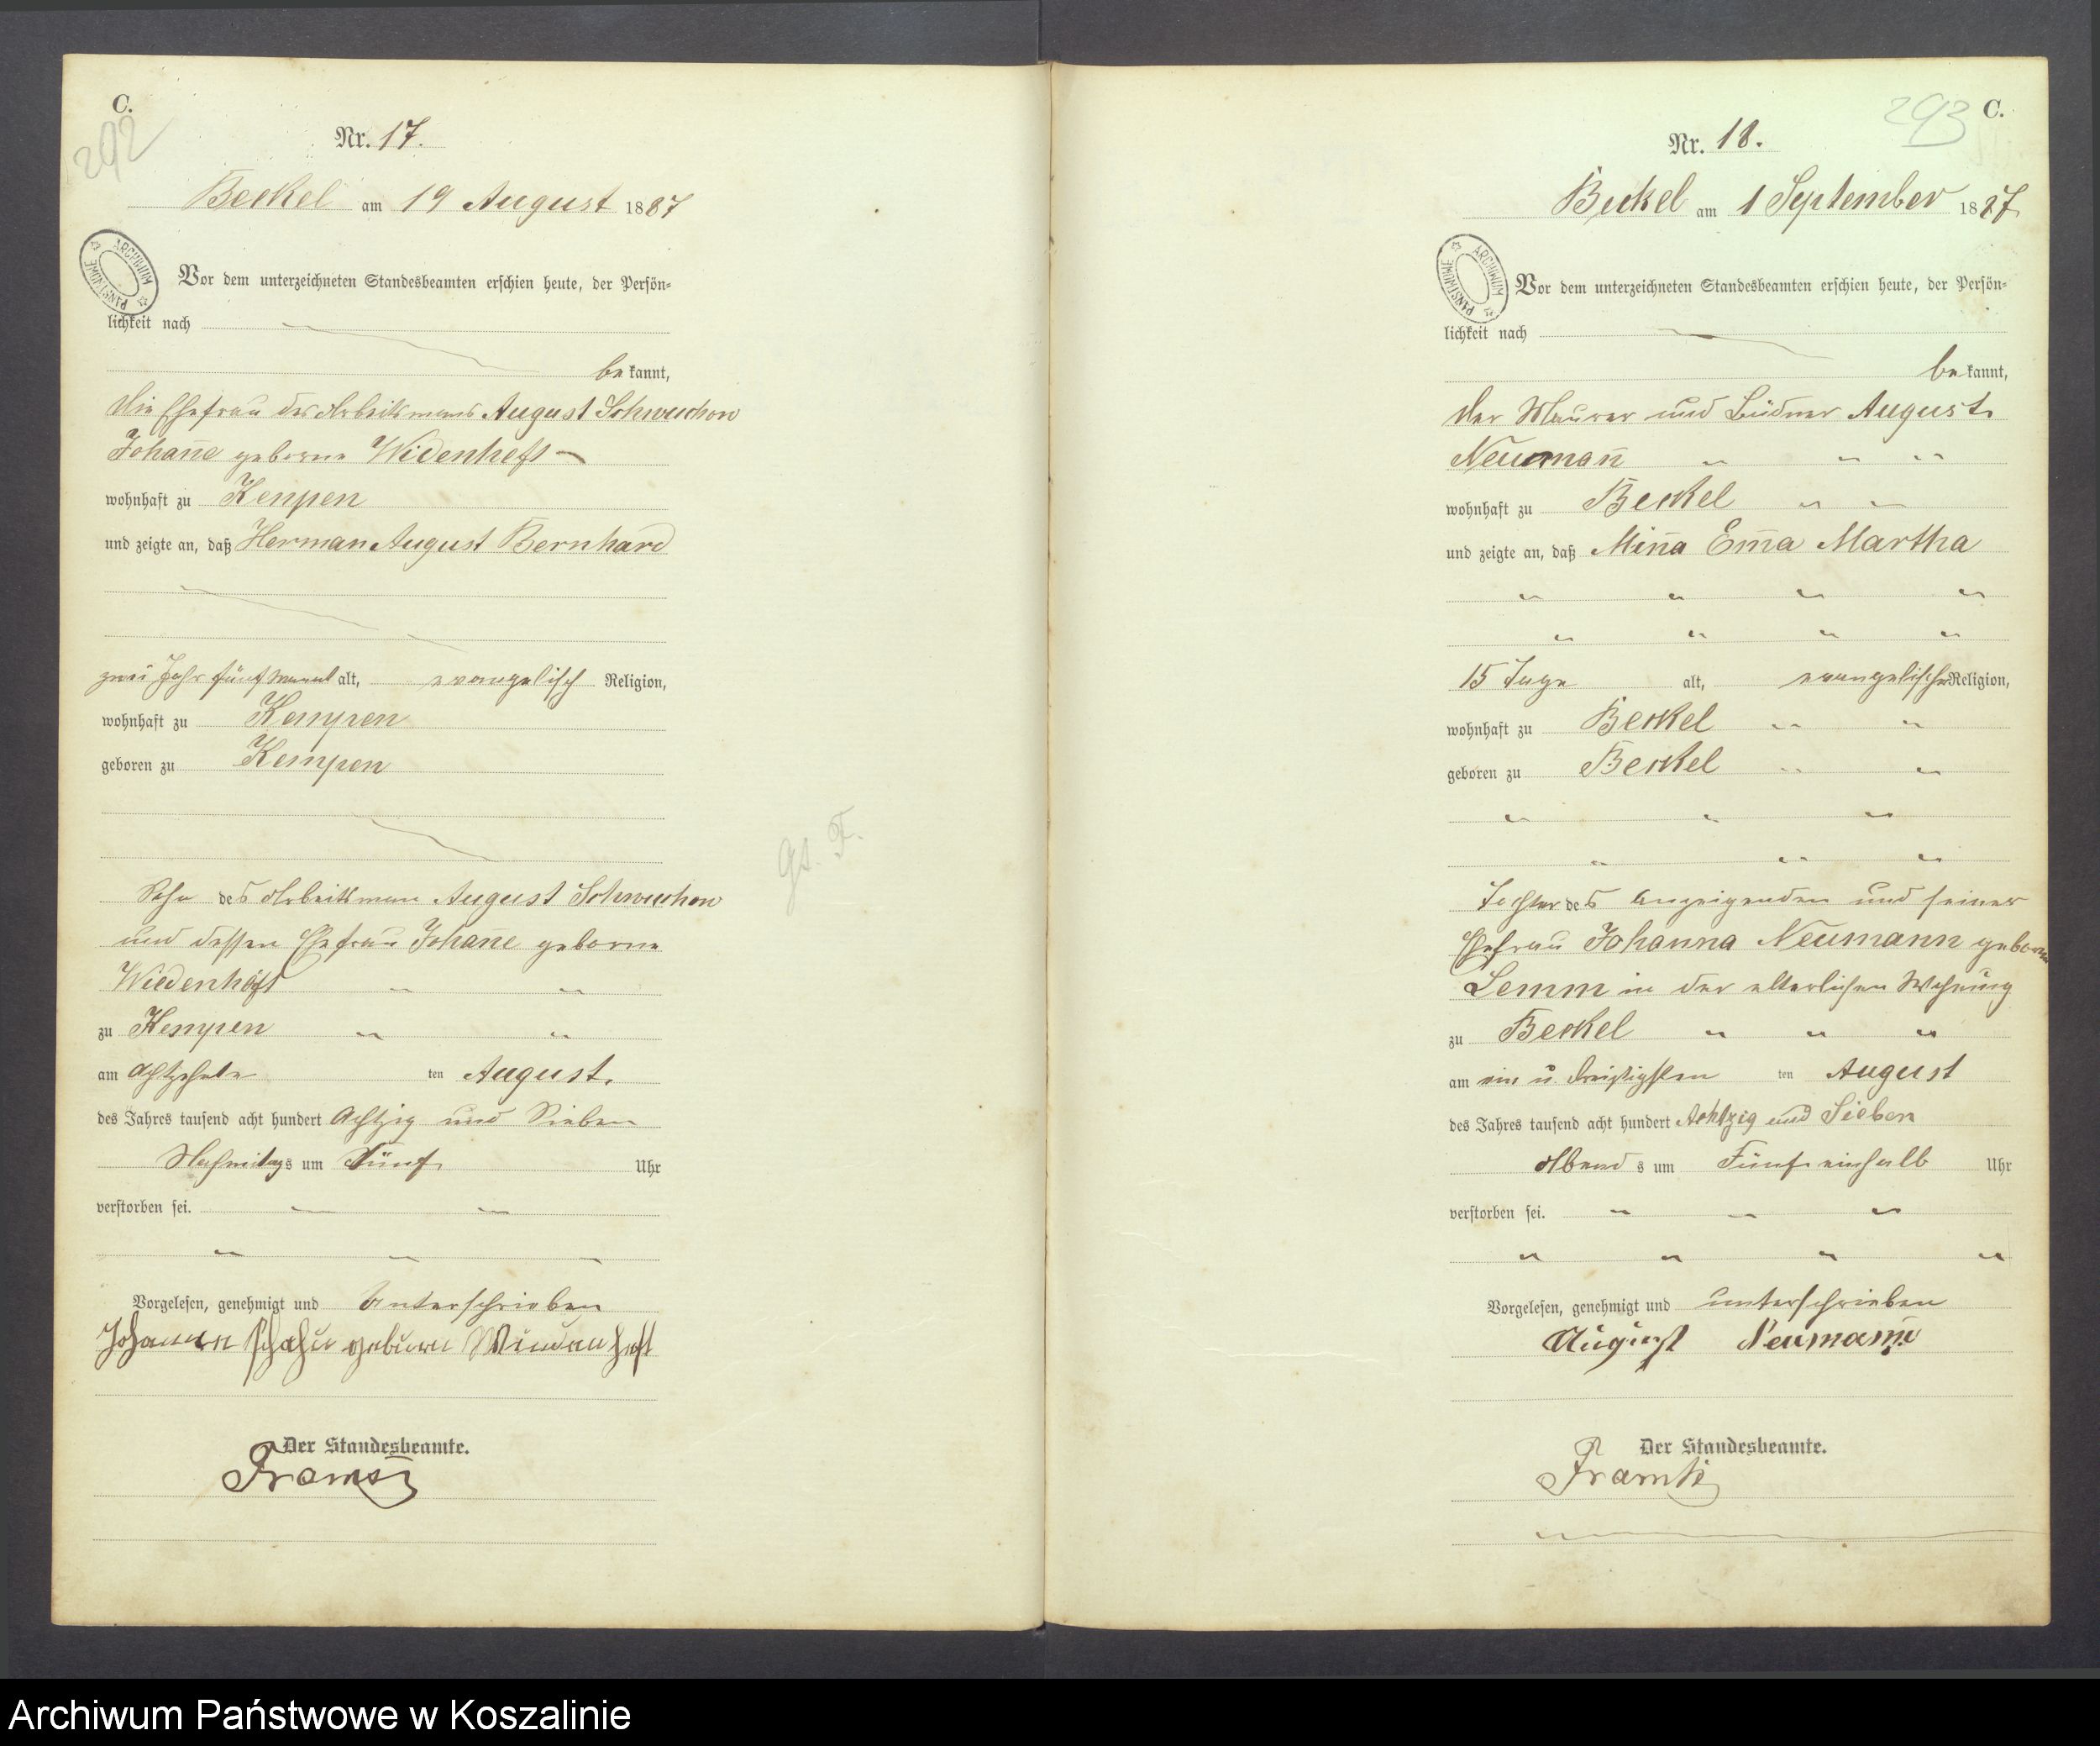 C.
292
Nr. 17.
Beckel am 19 August 1887
ARCHIWUM PAŃSTWOWE
Vor dem unterzeichneten Standesbeamten erschien heute, der Persön-
lichkeit nach
be kannt,
die Ehefrau des Arbeitsmans August Schwuchow
Johan̄e geborne Widenheft
wohnhaft zu Kempen
und zeigte an, daß Herman August Bernhard
zwei Jahr fünf Monat alt, evangelisch Religion,
wohnhaft zu Kempen
geboren zu Kempen
Sohn des Arbeitsman August Schwuchow
und dessen Ehefrau Johan̄e geborne
Wiedenhöft
zu Kempen
am Achtzehnte ten August
des Jahres tausend acht hundert Achtzig und Sieben
Nachmitags um Fünf Uhr
verstorben sei.
Vorgelesen, genehmigt und Unterschrieben
Der Standesbeamte.
gs. F.
293
C.
Nr. 18.
Beckel am 1 September 1887
ARCHIWUM PAŃSTWOWE
Vor dem unterzeichneten Standesbeamten erschien heute, der Persön-
lichkeit nach
be kannt,
der Maurer und Büdner August
Neuman̄
wohnhaft zu Beckel
und zeigte an, daß Min̄a Em̄a Martha
15 Tage alt, evangelischer Religion,
wohnhaft zu Beckel
geboren zu Beckel
Tochter des Anzeigenden und seiner
Ehefrau Johanna Neumann geborne
Lemm in der elterlichen Wohnung
zu Beckel
am ein u. dreißigsten ten August
des Jahres tausend acht hundert Achtzig und Sieben
Abends um Fünf einhalb Uhr
verstorben sei.
Vorgelesen, genehmigt und unterschrieben
August Neumann
Der Standesbeamte.
Archiwum Państwowe w Koszalinie